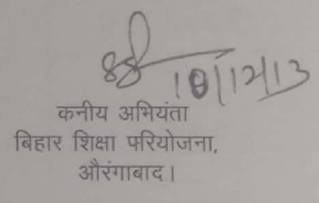 10/12/13
कनीय अभियंता
बिहार शिक्षा परियोजना,
औरंगाबाद।